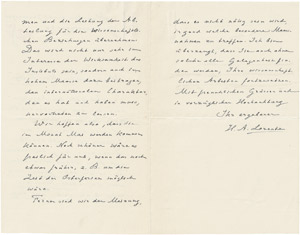 man und die Leitung der Ab-
teilung für die wissenschaftli-
chen Forschungen übernehmen.
Das wird nicht nur sehr im
Interesse der Wirksamkeit des
Instituts sein, sondern auch in
hohem Maasse dazu beitragen,
den internationalen Charakter,
den es hat und haben muss,
Wir hoffen also, dass Sie
im Monat Mai werden kommen
können. Noch schöner wäre es
freilich für uns, wenn das noch
etwas früher, z. B. um die
Zeit der Osterferien möglich
wäre.
Ferner sind wir der Meinung,
dass es nicht nötig sein wird,
irgend welche besondere Mass-
nahmen zu treffen. Ich bin
überzeugt, dass Sie auch ohne
solche alle Gelegenheit fin-
den werden, Ihre wissenschaft-
lichen Arbeiten fortzusetzen.
Mit freundlichen Grüssen und
in vorzüglicher Hochachtung
Ihr ergebener
H. A. Lorentz